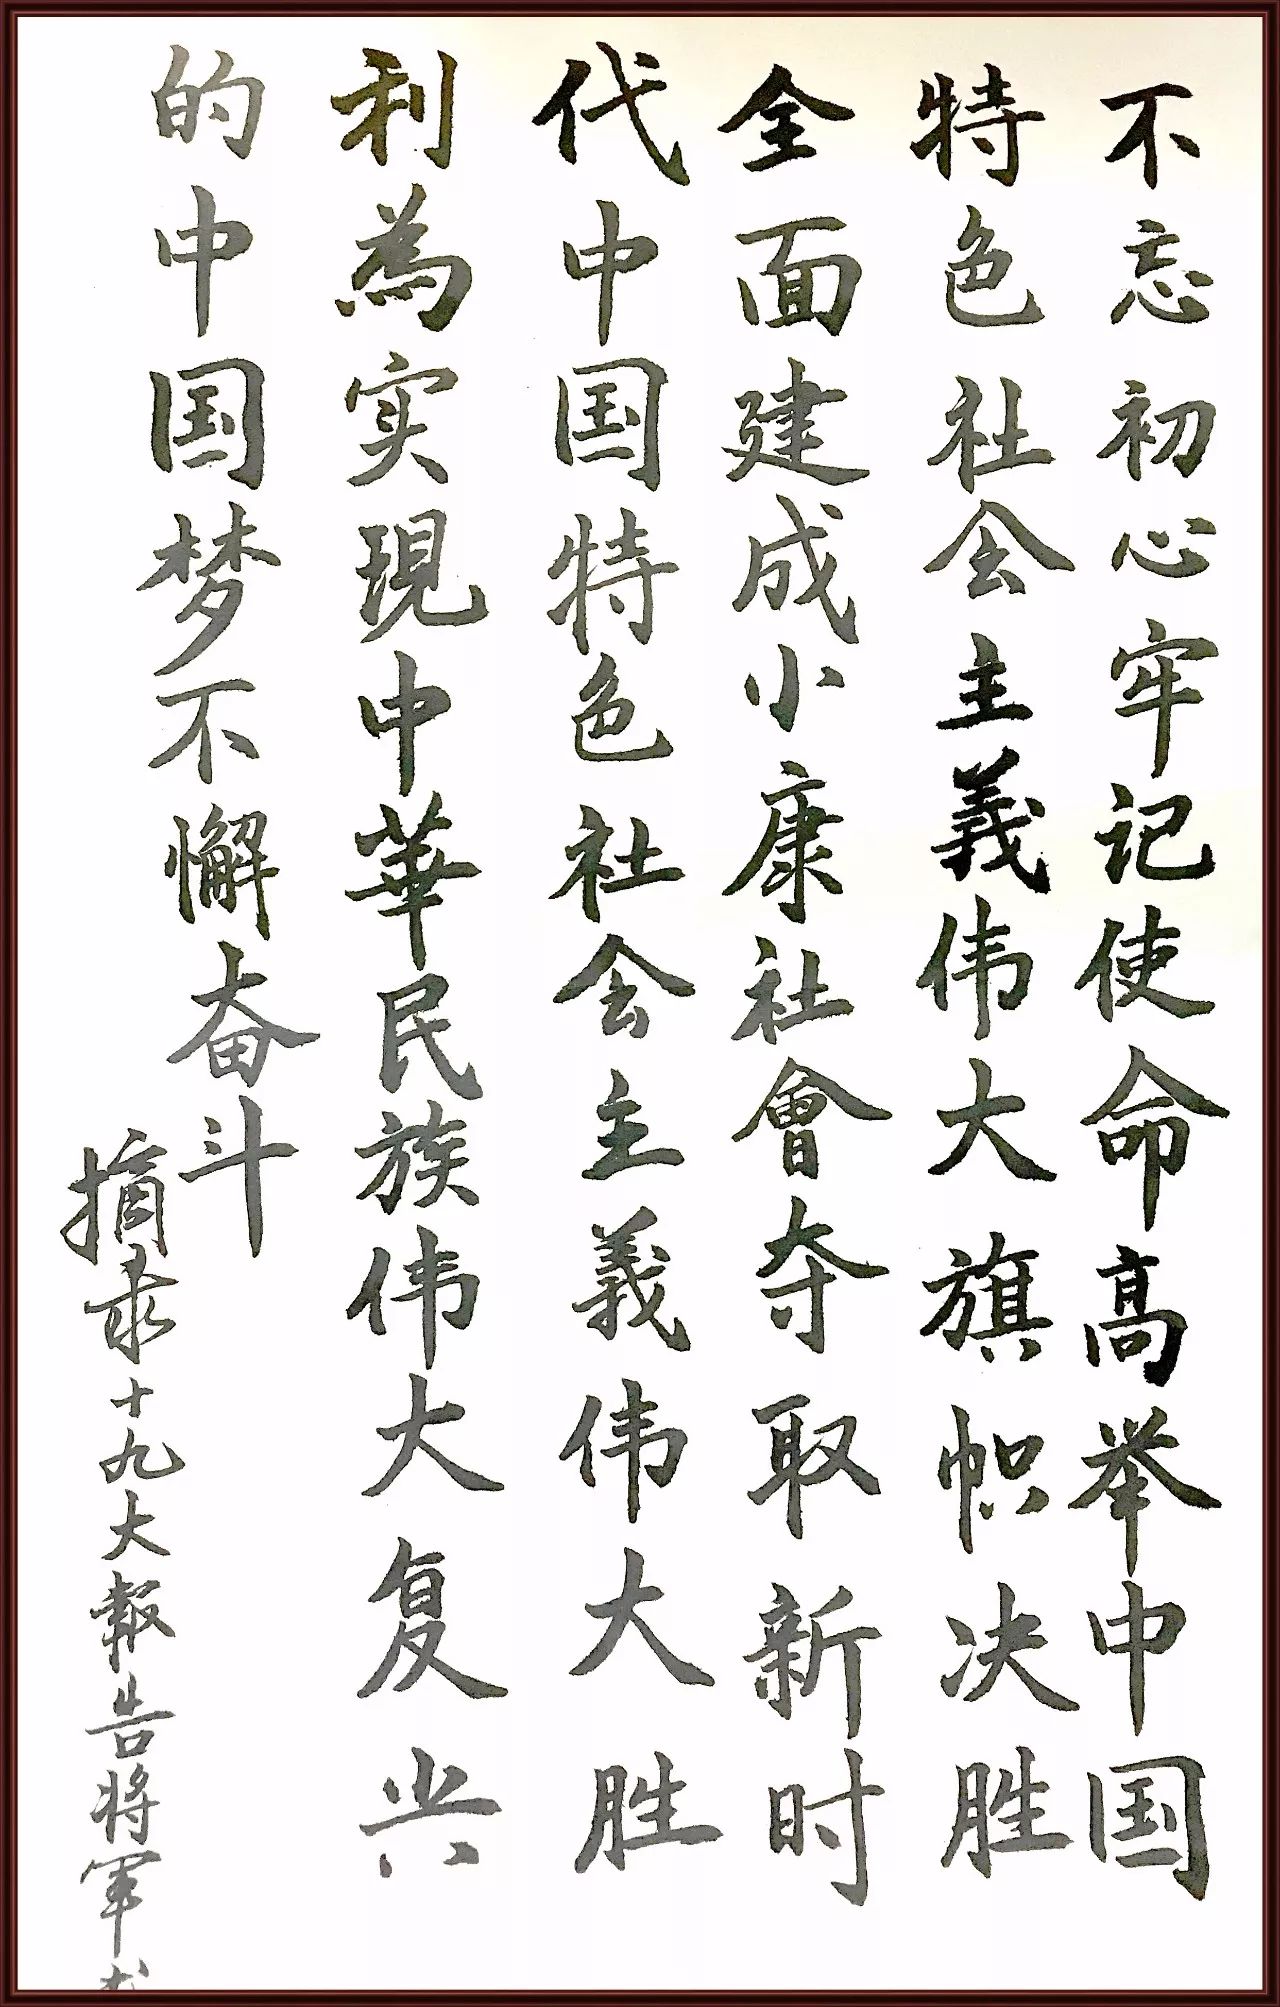 不忘初心牢记使命高举中国
特色社会主義伟大旗帜决胜
全面建成小康社會夺取新时
代中国特色社会主義伟大胜
利為实現中華民族伟大复兴
的中国梦不懈奋斗
摘录十九大報告将軍